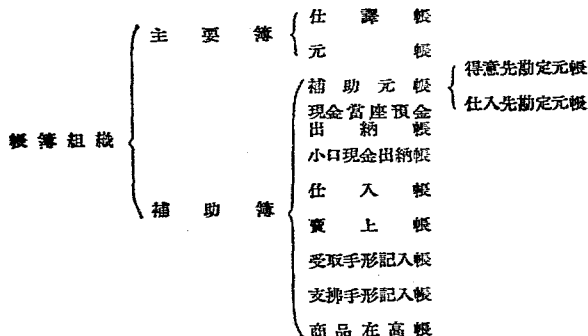 帳簿組織
主要簿
仕譯帳
元帳
補助簿
補助元帳
得意先勘定元帳
仕入先勘定元帳
現金當座預金
出納帳
小口現金出納帳
仕入帳
賣上帳
受取手形記入帳
支拂手形記入帳
商品在高帳